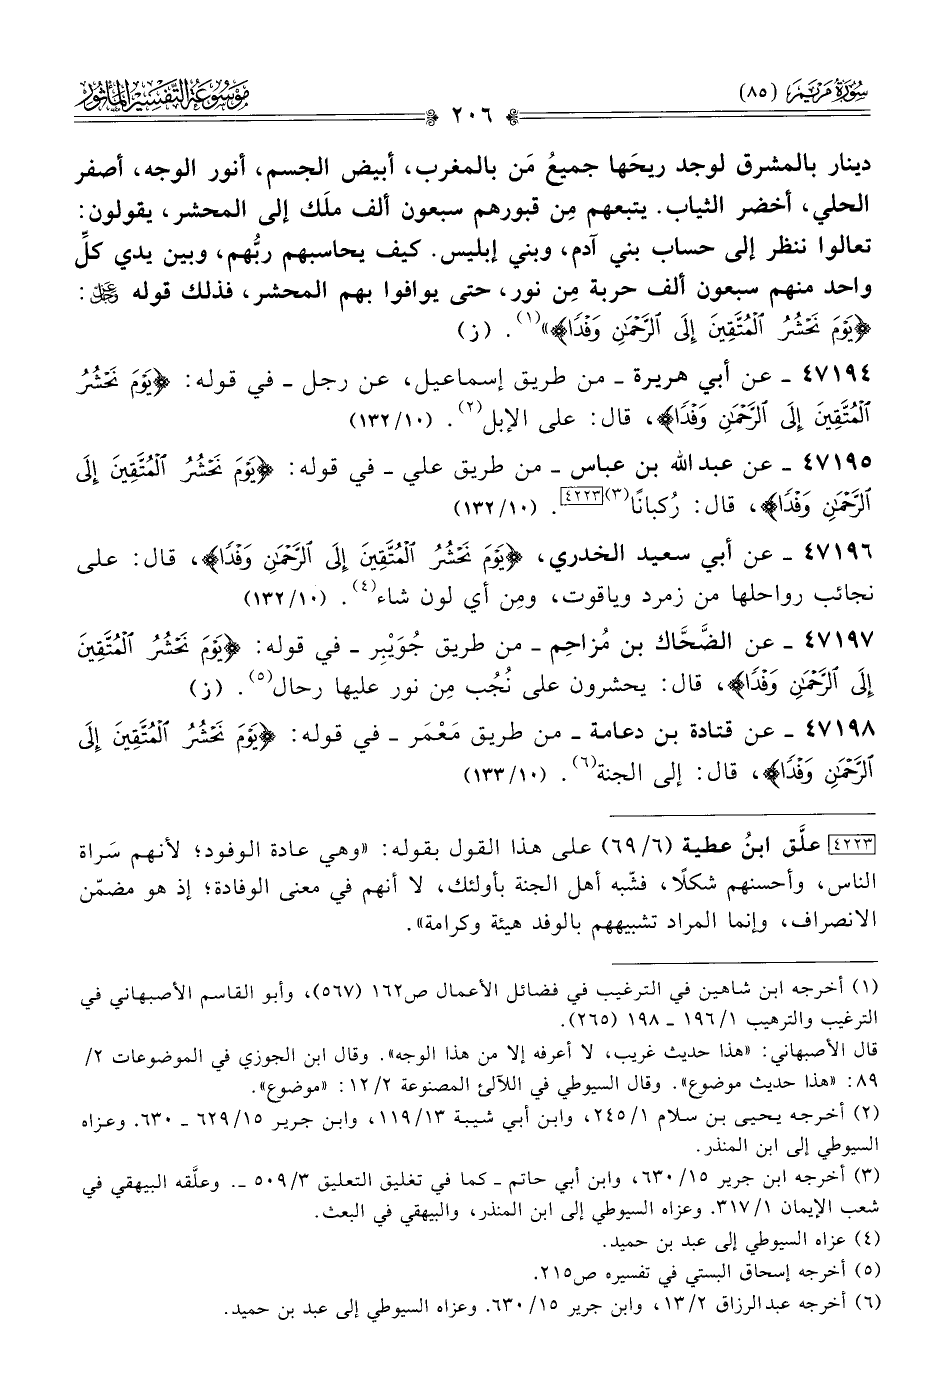 سُورَةُ مَرْيَمَ (٨٥)
٢٠٦
مَوْسُوعَةُ التَّفْسِيرِ المَأْثُور
دينار بالمشرق لوجد ريحَها جميعُ مَن بالمغرب، أبيض الجسم، أنور الوجه، أصفر
الحلي، أخضر الثياب. يتبعهم مِن قبورهم سبعون ألف ملَك إلى المحشر، يقولون:
تعالوا ننظر إلى حساب بني آدم، وبني إبليس. كيف يحاسبهم ربُّهم، وبين يدي كلِّ
واحد منهم سبعون ألف حربة مِن نور، حتى يوافوا بهم المحشر، فذلك قوله ﷿:
﴿يَوْمَ نَحْشُرُ الْمُتَّقِينَ إِلَى الرَّحْمَٰنِ وَفْدًا﴾»(١). (ز)
٤٧١٩٤ ـ عن أبي هريرة ـ من طريق إسماعيل، عن رجل ـ في قوله: ﴿يَوْمَ نَحْشُرُ
الْمُتَّقِينَ إِلَى الرَّحْمَٰنِ وَفْدًا﴾، قال: على الإبل(٢). (١٣٢/١٠)
٤٧١٩٥ ـ عن عبد الله بن عباس ـ من طريق علي ـ في قوله: ﴿يَوْمَ نَحْشُرُ الْمُتَّقِينَ إِلَى
الرَّحْمَٰنِ وَفْدًا﴾، قال: رُكبانًا(٣)[٤٢٢٣]. (١٣٢/١٠)
٤٧١٩٦ ـ عن أبي سعيد الخدري، ﴿يَوْمَ نَحْشُرُ الْمُتَّقِينَ إِلَى الرَّحْمَٰنِ وَفْدًا﴾، قال: على
نجائب رواحلها من زمرد وياقوت، ومِن أي لون شاء(٤). (١٣٢/١٠)
٤٧١٩٧ ـ عن الضَّحَّاك بن مُزاحِم ـ من طريق جُوَيْبِر ـ في قوله: ﴿يَوْمَ نَحْشُرُ الْمُتَّقِينَ
إِلَى الرَّحْمَٰنِ وَفْدًا﴾، قال: يحشرون على نُجُب مِن نور عليها رحال(٥). (ز)
٤٧١٩٨ ـ عن قتادة بن دعامة ـ من طريق مَعْمَر ـ في قوله: ﴿يَوْمَ نَحْشُرُ الْمُتَّقِينَ إِلَى
الرَّحْمَٰنِ وَفْدًا﴾، قال: إلى الجنة(٦). (١٣٣/١٠)
[٤٢٢٣] علَّق ابنُ عطية (٦٩/٦) على هذا القول بقوله: «وهي عادة الوفود؛ لأنهم سَراة
الناس، وأحسنهم شكلًا، فشّبه أهل الجنة بأولئك، لا أنهم في معنى الوفادة؛ إذ هو مضمّن
الانصراف، وإنما المراد تشبيههم بالوفد هيئة وكرامة».
(١) أخرجه ابن شاهين في الترغيب في فضائل الأعمال ص١٦٢ (٥٦٧)، وأبو القاسم الأصبهاني في
الترغيب والترهيب ١٩٦/١ ـ ١٩٨ (٢٦٥).
قال الأصبهاني: «هذا حديث غريب، لا أعرفه إلا من هذا الوجه». وقال ابن الجوزي في الموضوعات ٢/
٨٩: «هذا حديث موضوع». وقال السيوطي في اللآلئ المصنوعة ١٢/٢: «موضوع».
(٢) أخرجه يحيى بن سلام ٢٤٥/١، وابن أبي شيبة ١١٩/١٣، وابن جرير ٦٢٩/١٥ ـ ٦٣٠. وعزاه
السيوطي إلى ابن المنذر.
(٣) أخرجه ابن جرير ٦٣٠/١٥، وابن أبي حاتم ـ كما في تغليق التعليق ٥٠٩/٣ ـ. وعلَّقه البيهقي في
شعب الإيمان ٣١٧/١. وعزاه السيوطي إلى ابن المنذر، والبيهقي في البعث.
(٤) عزاه السيوطي إلى عبد بن حميد.
(٥) أخرجه إسحاق البستي في تفسيره ص٢١٥.
(٦) أخرجه عبد الرزاق ١٣/٢، وابن جرير ٦٣٠/١٥. وعزاه السيوطي إلى عبد بن حميد.